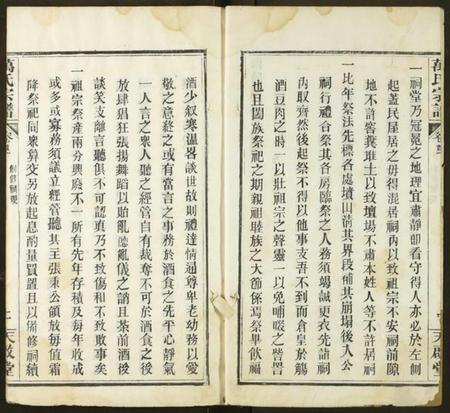 萬氏宗譜
卷首
一祠堂乃冠冕之地理宜肅靜卽看守得人亦必於左側
起蓋民屋居之毋得混居祠內以致祖宗不安祠前隙
地不許窖糞堆土以致壇場不肅本姓人等不許居祠
一比年祭法先標各處墳山清其界段補其崩塌後入公
祠行禮合祭其各房臨祭之人務須竭誠更衣先詣祠
內取齊然後起祭不得以他事支吾不到而倉皇於觴
酒豆肉之時一以壯祖宗之聲靈一以免哺啜之訾詈
也且闔族祭祀之期親祖睦族之大節係焉祭畢飲福
天啟堂
酒少叙寒温畧談世故則禮達情通尊卑老幼務以愛
敬之意終之或有當言之事務於酒食之先平心靜氣
一人言之衆人聽之經管自有裁奪不可於酒食之後
放肆猖狂張揚舞蹈以貽亂德亂儀之誚且茶前酒後
談笑支離言聽俱不可認眞乃不致傷和不致敗事矣
一祖宗祭產兩分興廢不一所有先年存積及每年收成
或多或寡務須議立經管聽其主張秉公領放每值霜
降祭祀同衆算交另放起息酌量買置且以備修祠續
萬氏宗譜
卷首
祠會補規
天啟堂